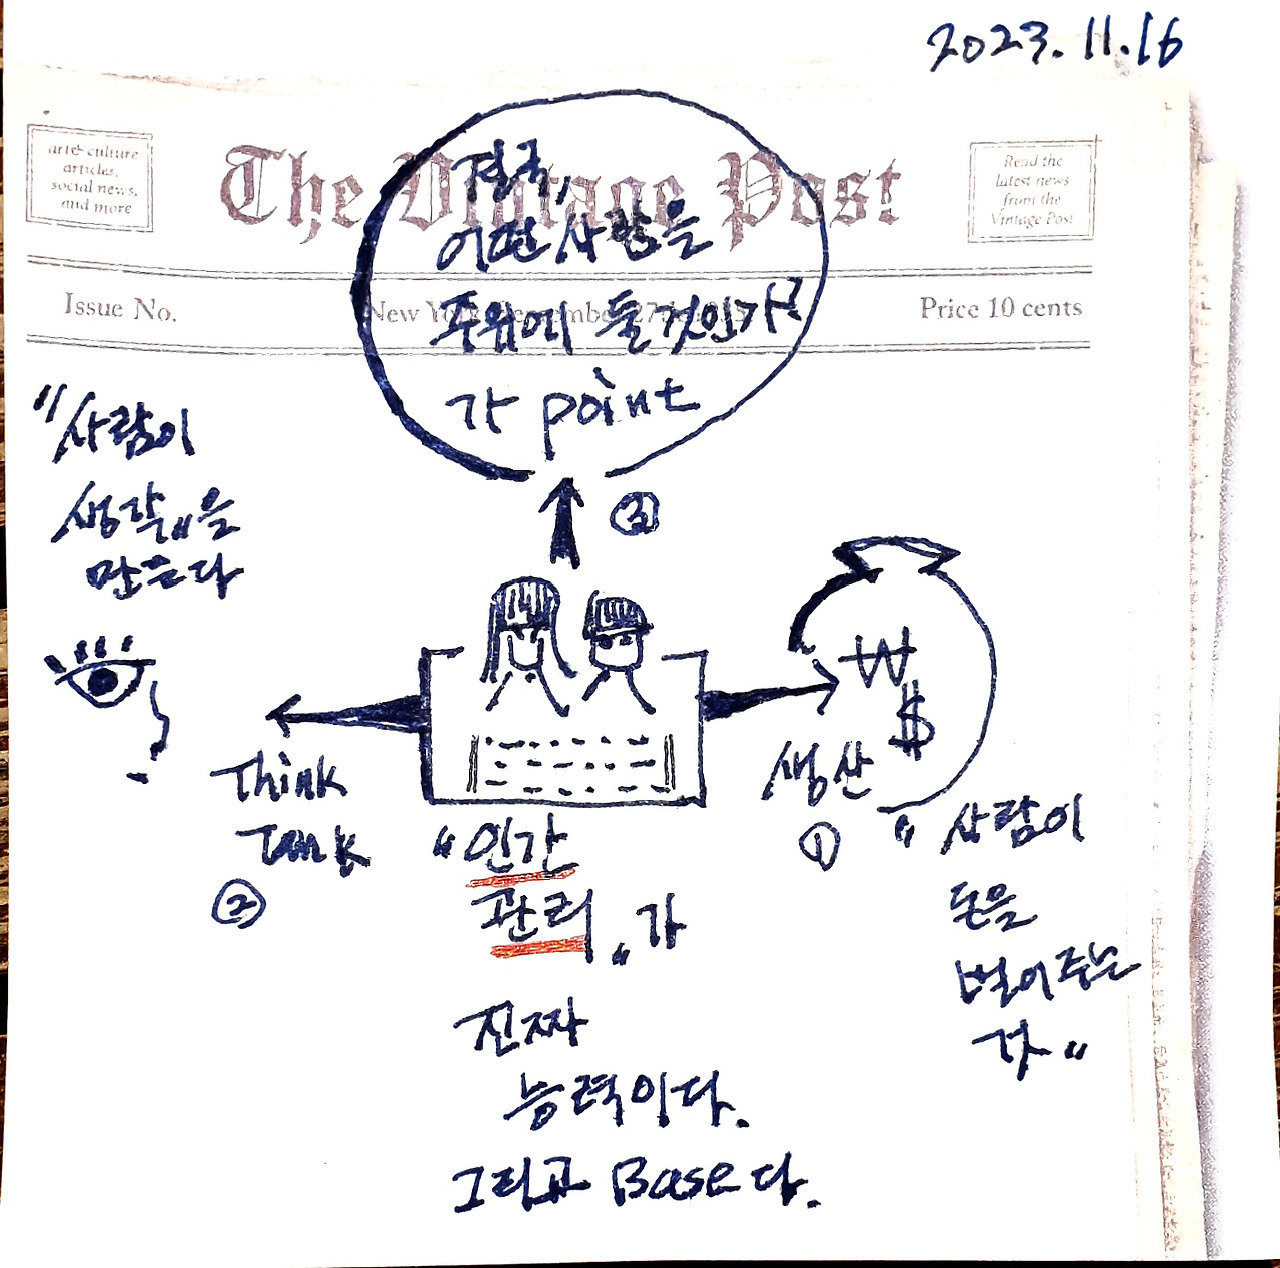 2023.11.16
art & culture
articles,
social news,
and more
The Vintage Post
Read the
latest news
from the
Vintage Post
Issue No.
New York
Price 10 cents
결국,
어떤 사람을
주위에 둘것인가?
가 point
"사람이
생각"을
만든다
③
₩
$
Think
Tank
②
생산
①
"사람이
돈을
벌어주는
자"
"인간
관리"가
진짜
능력이다.
그리고 Base다.